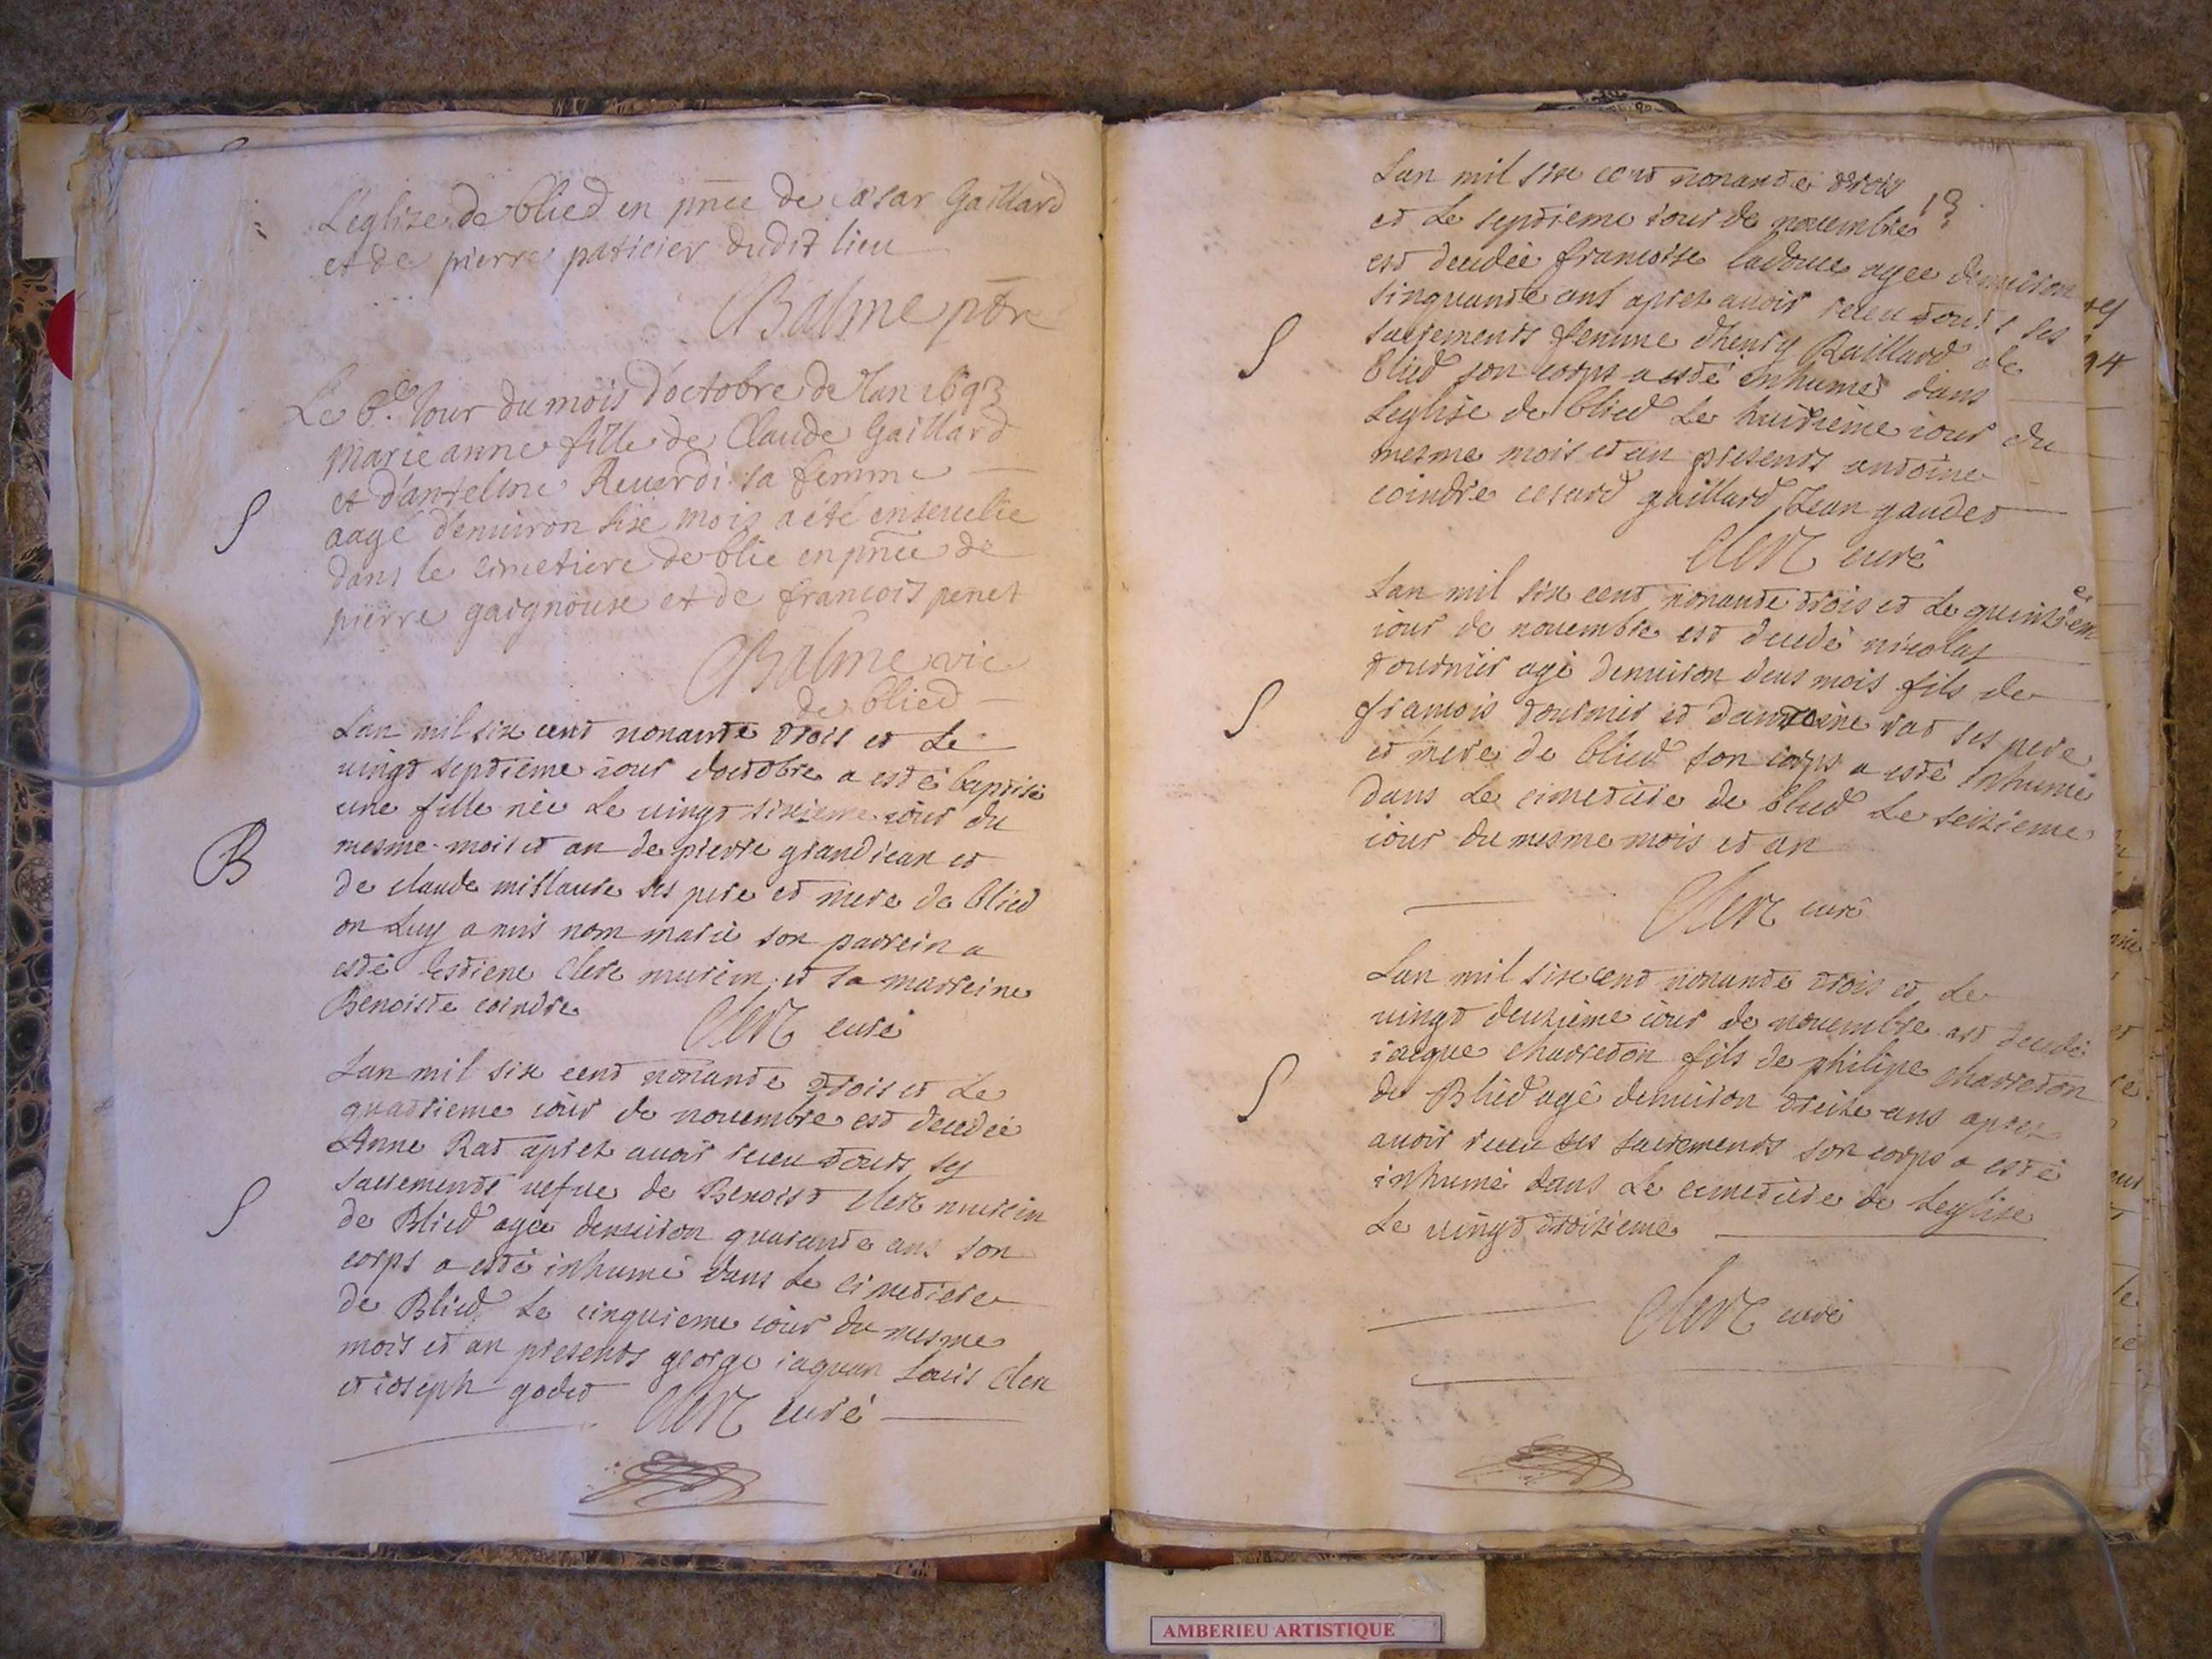 L'eglize de blied en pnce de Cæsar Gaillard
et de pierre paticier dudit lieu
Balme ptre
Le 6e Jour du mois d'octobre de l'an 1693
marie anne fille de Claude Gaillard
et d'antelme Reuerdi sa femme
S
aagé d'enuiron six mois a été enseuelie
dans le cimetiere de blie en pnce de
pierre et de francois penet
Balme vic
de blied
Lan mil six cent nonante trois et Le
uingt septieme iour doctobre a esté baptisé
une fille née Le uingt sixieme iour du
B
mesme mois et an de pierre grandiean et
de claude ses pere et mere de Blied
on Luy a mis nom marie son parrein a
esté Estiene Clerc et sa marreine
Benoiste coindre
Clerc curé
Lan mil six cent nonante trois et Le
quatrieme iour de nouembre est decedée
Anne Rat apret auoir receu touts ses
sacrements uefue de Benoist Clerc
S
de Blied agée denuiron quarante ans son
corps a esté inhumé dans Le cimetiere
de Blied Le cinquieme iour du mesme
mois et an presents george iaquan Louis Clerc
et ioseph godet
Clerc curé
Lan mil six cent nonante trois
13
et Le septieme iour de nouembre
est decedée francoise agee denuiron
sinquante ans apret auoir receu touts ses
S
sacrements femme dhenry Raillard de
Blied son corps a esté inhumé dans
Leglise de Blied Le huitieme iour du
mesme mois et an presents antoine
coindre cesard gaillard Jean gaudet
Clerc curé
Lan mil six cent nonante trois et Le quinziem
e
iour de nouembre est decedé nicolas
tournier agé denuiron deus mois fils de
S
francois tournier et dantoine rat ses pere
et mere de Blied son corps a esté inhumé
dans Le cimetiere de blied Le seizieme
iour du mesme mois et an
Clerc curé
Lan mil six cent nonante trois et Le
uingt deuzieme iour de nouembre est decedé
iacque charreton fils de philipe charreton
S
de Blied agé denuiron treize ans apret
auoir receu ses sacrements son corps a esté
inhumé dans Le cimetiere de Leglise
Le uingt troizieme
Clerc curé
94
AMBERIEU ARTISTIQUE